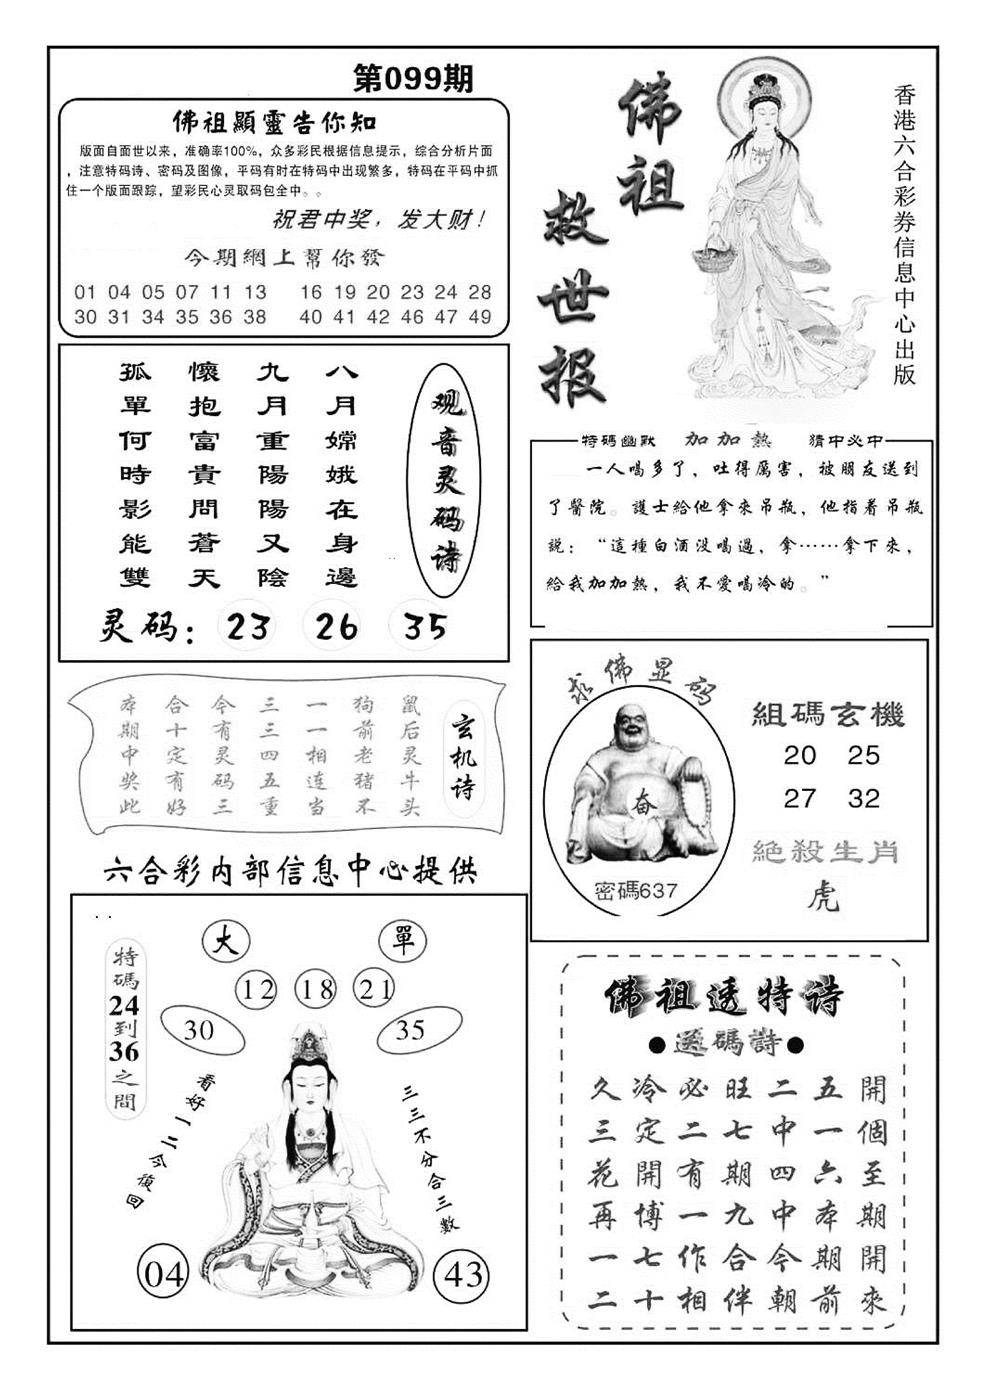 第099期
佛祖顯靈告你知
版面自面世以来，准确率100%，众多彩民根据信息提示，综合分析片面
，注意特码诗、密码及图像，平码有时在特码中出现繁多，特码在平码中抓
住一个版面跟踪，望彩民心灵取码包全中。。
祝君中奖，发大财！
今期網上幫你發
01 04 05 07 11 13 16 19 20 23 24 28
30 31 34 35 36 38 40 41 42 46 47 49
佛祖
救世报
香港六合彩券信息中心出版
观音灵码诗
八月嫦娥在身邊
九月重陽陽又陰
懷抱富貴問蒼天
孤單何時影能雙
灵码：23 26 35
特碼幽默 加加熱 猜中必中
一人喝多了，吐得厲害，被朋友送到
了醫院。護士給他拿來吊瓶，他指着吊瓶
説：“這種白酒没喝過，拿……拿下來，
給我加加熱，我不愛喝冷的。”
玄机诗
鼠后灵牛头
狗前老猪不
一一相连当
三三四五重
今有灵码三
合十定有好
本期中奖此
求佛显码
奋
密碼637
組碼玄機
20 25
27 32
絕殺生肖
虎
六合彩内部信息中心提供
大 單
12 18 21
30 35
特碼24到36之間
看好一二今復回
三三不分合三數
04 43
佛祖透特诗
●送碼詩●
久冷必旺二五開
三定二七中一個
花開有期四六至
再博一九中本期
一七作合今期開
二十相伴朝前來